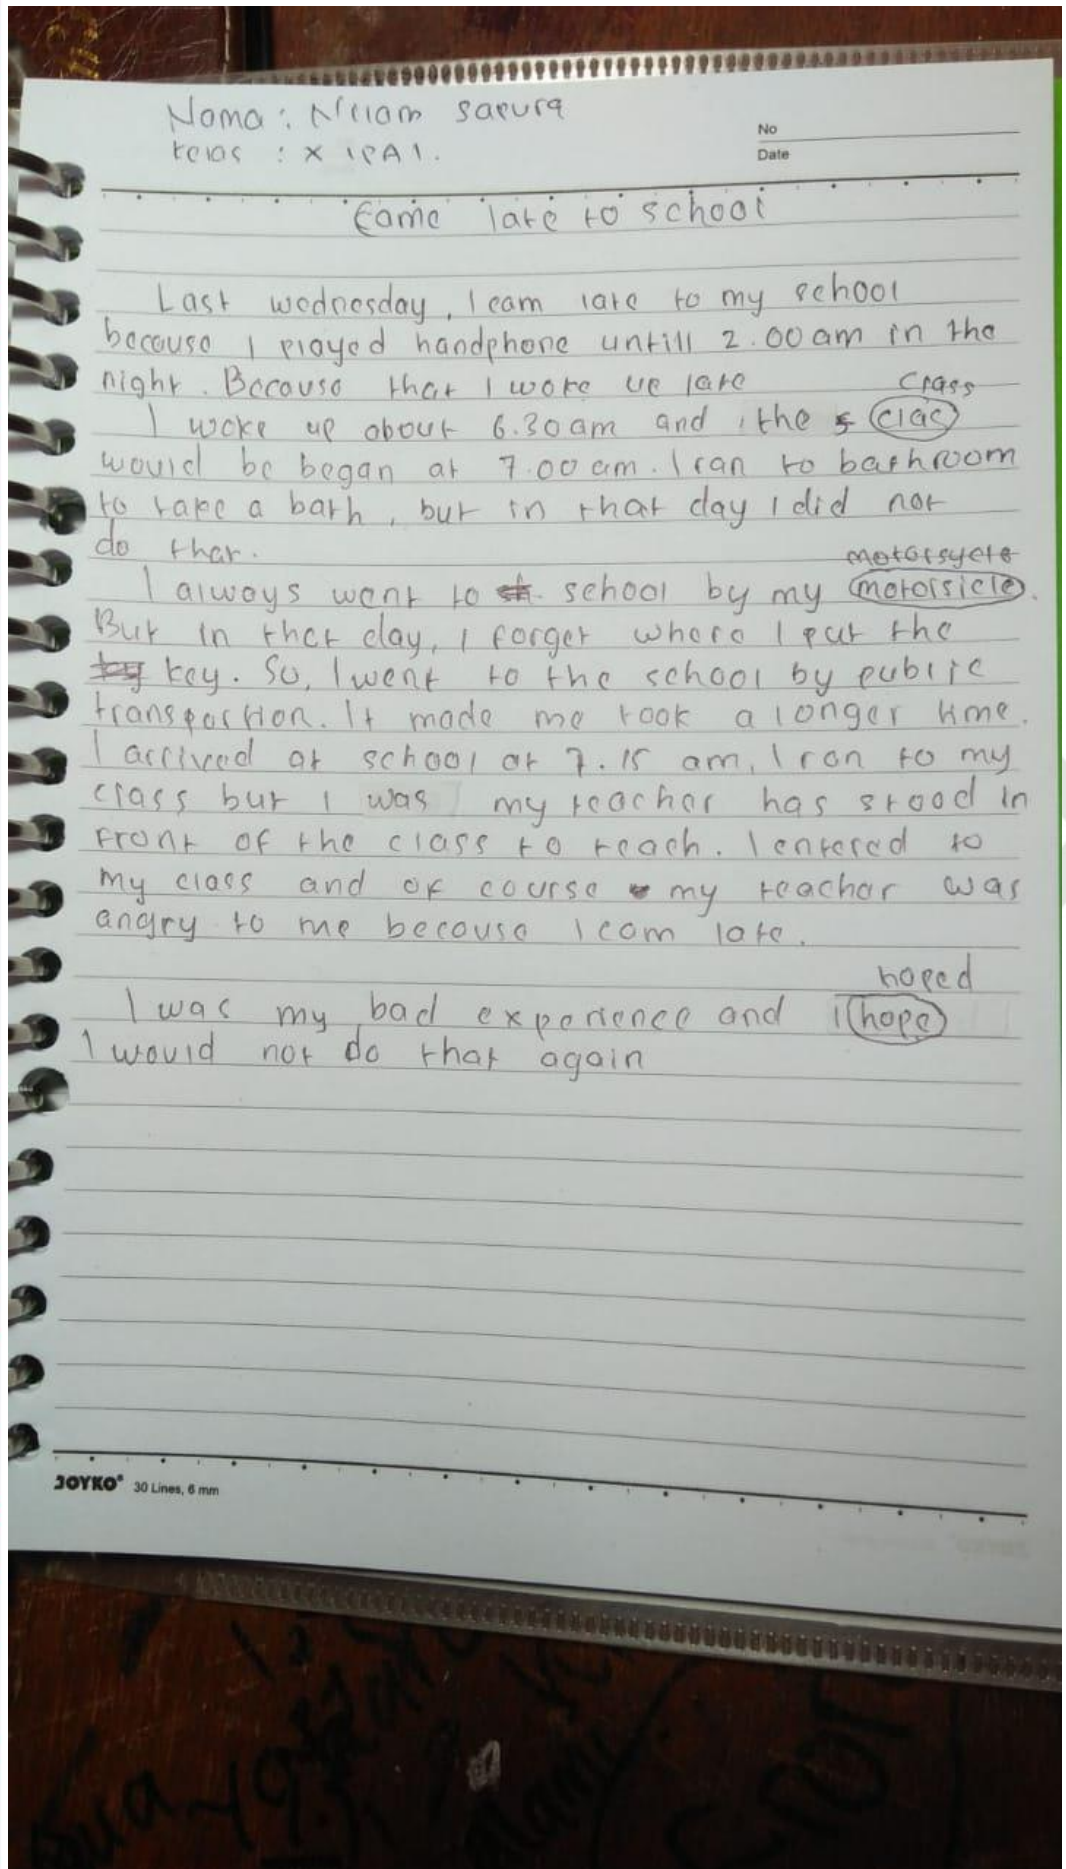 Nama :
Kelas : X IPA 1.
No
Date
Came late to school
Last wednesday, I cam late to my school
because I played handphone untill 2.00 am in the
night. Because that I woke up late
class
I woke up about 6.30 am and the clas
would be began at 7.00 am. I ran to bathroom
to take a bath, but in that day I did not
do that.
motorsycle
I always went to school by my motorsicle.
But in that day, I forget where I put the
key. So, I went to the school by public
transportion. It made me took a longer time.
I arrived at school at 7.15 am, I ran to my
class but I was my teacher has stood in
front of the class to teach. I entered to
my class and of course my teacher was
angry to me because I cam late.
hoped
I was my bad experience and I hope
I would not do that again
JOYKO® 30 Lines, 6 mm